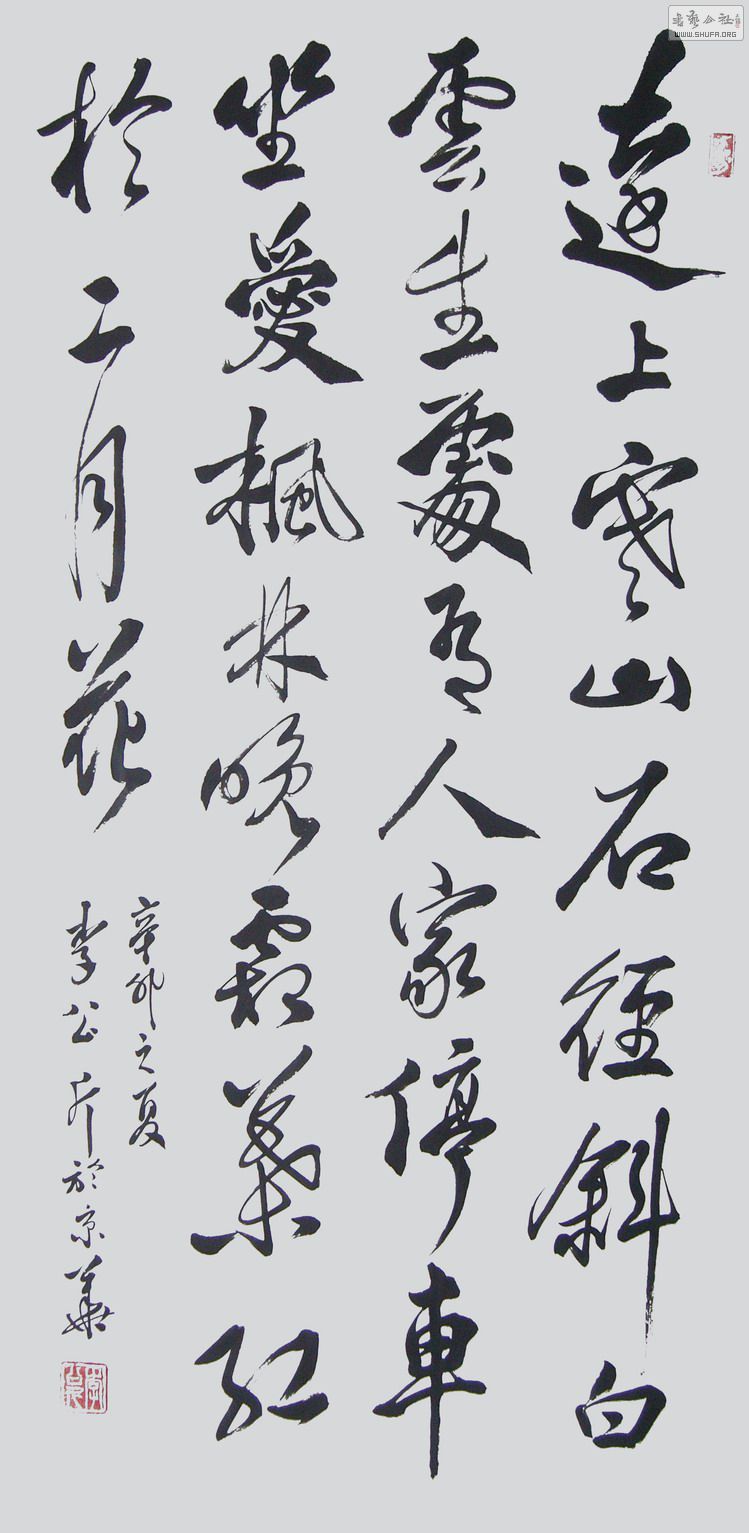 遠上寒山石徑斜白
雲生處有人家停車
坐愛楓林晚霜葉紅
於二月花
辛卯之夏
李公於京華
WWW.SHUFA.ORG